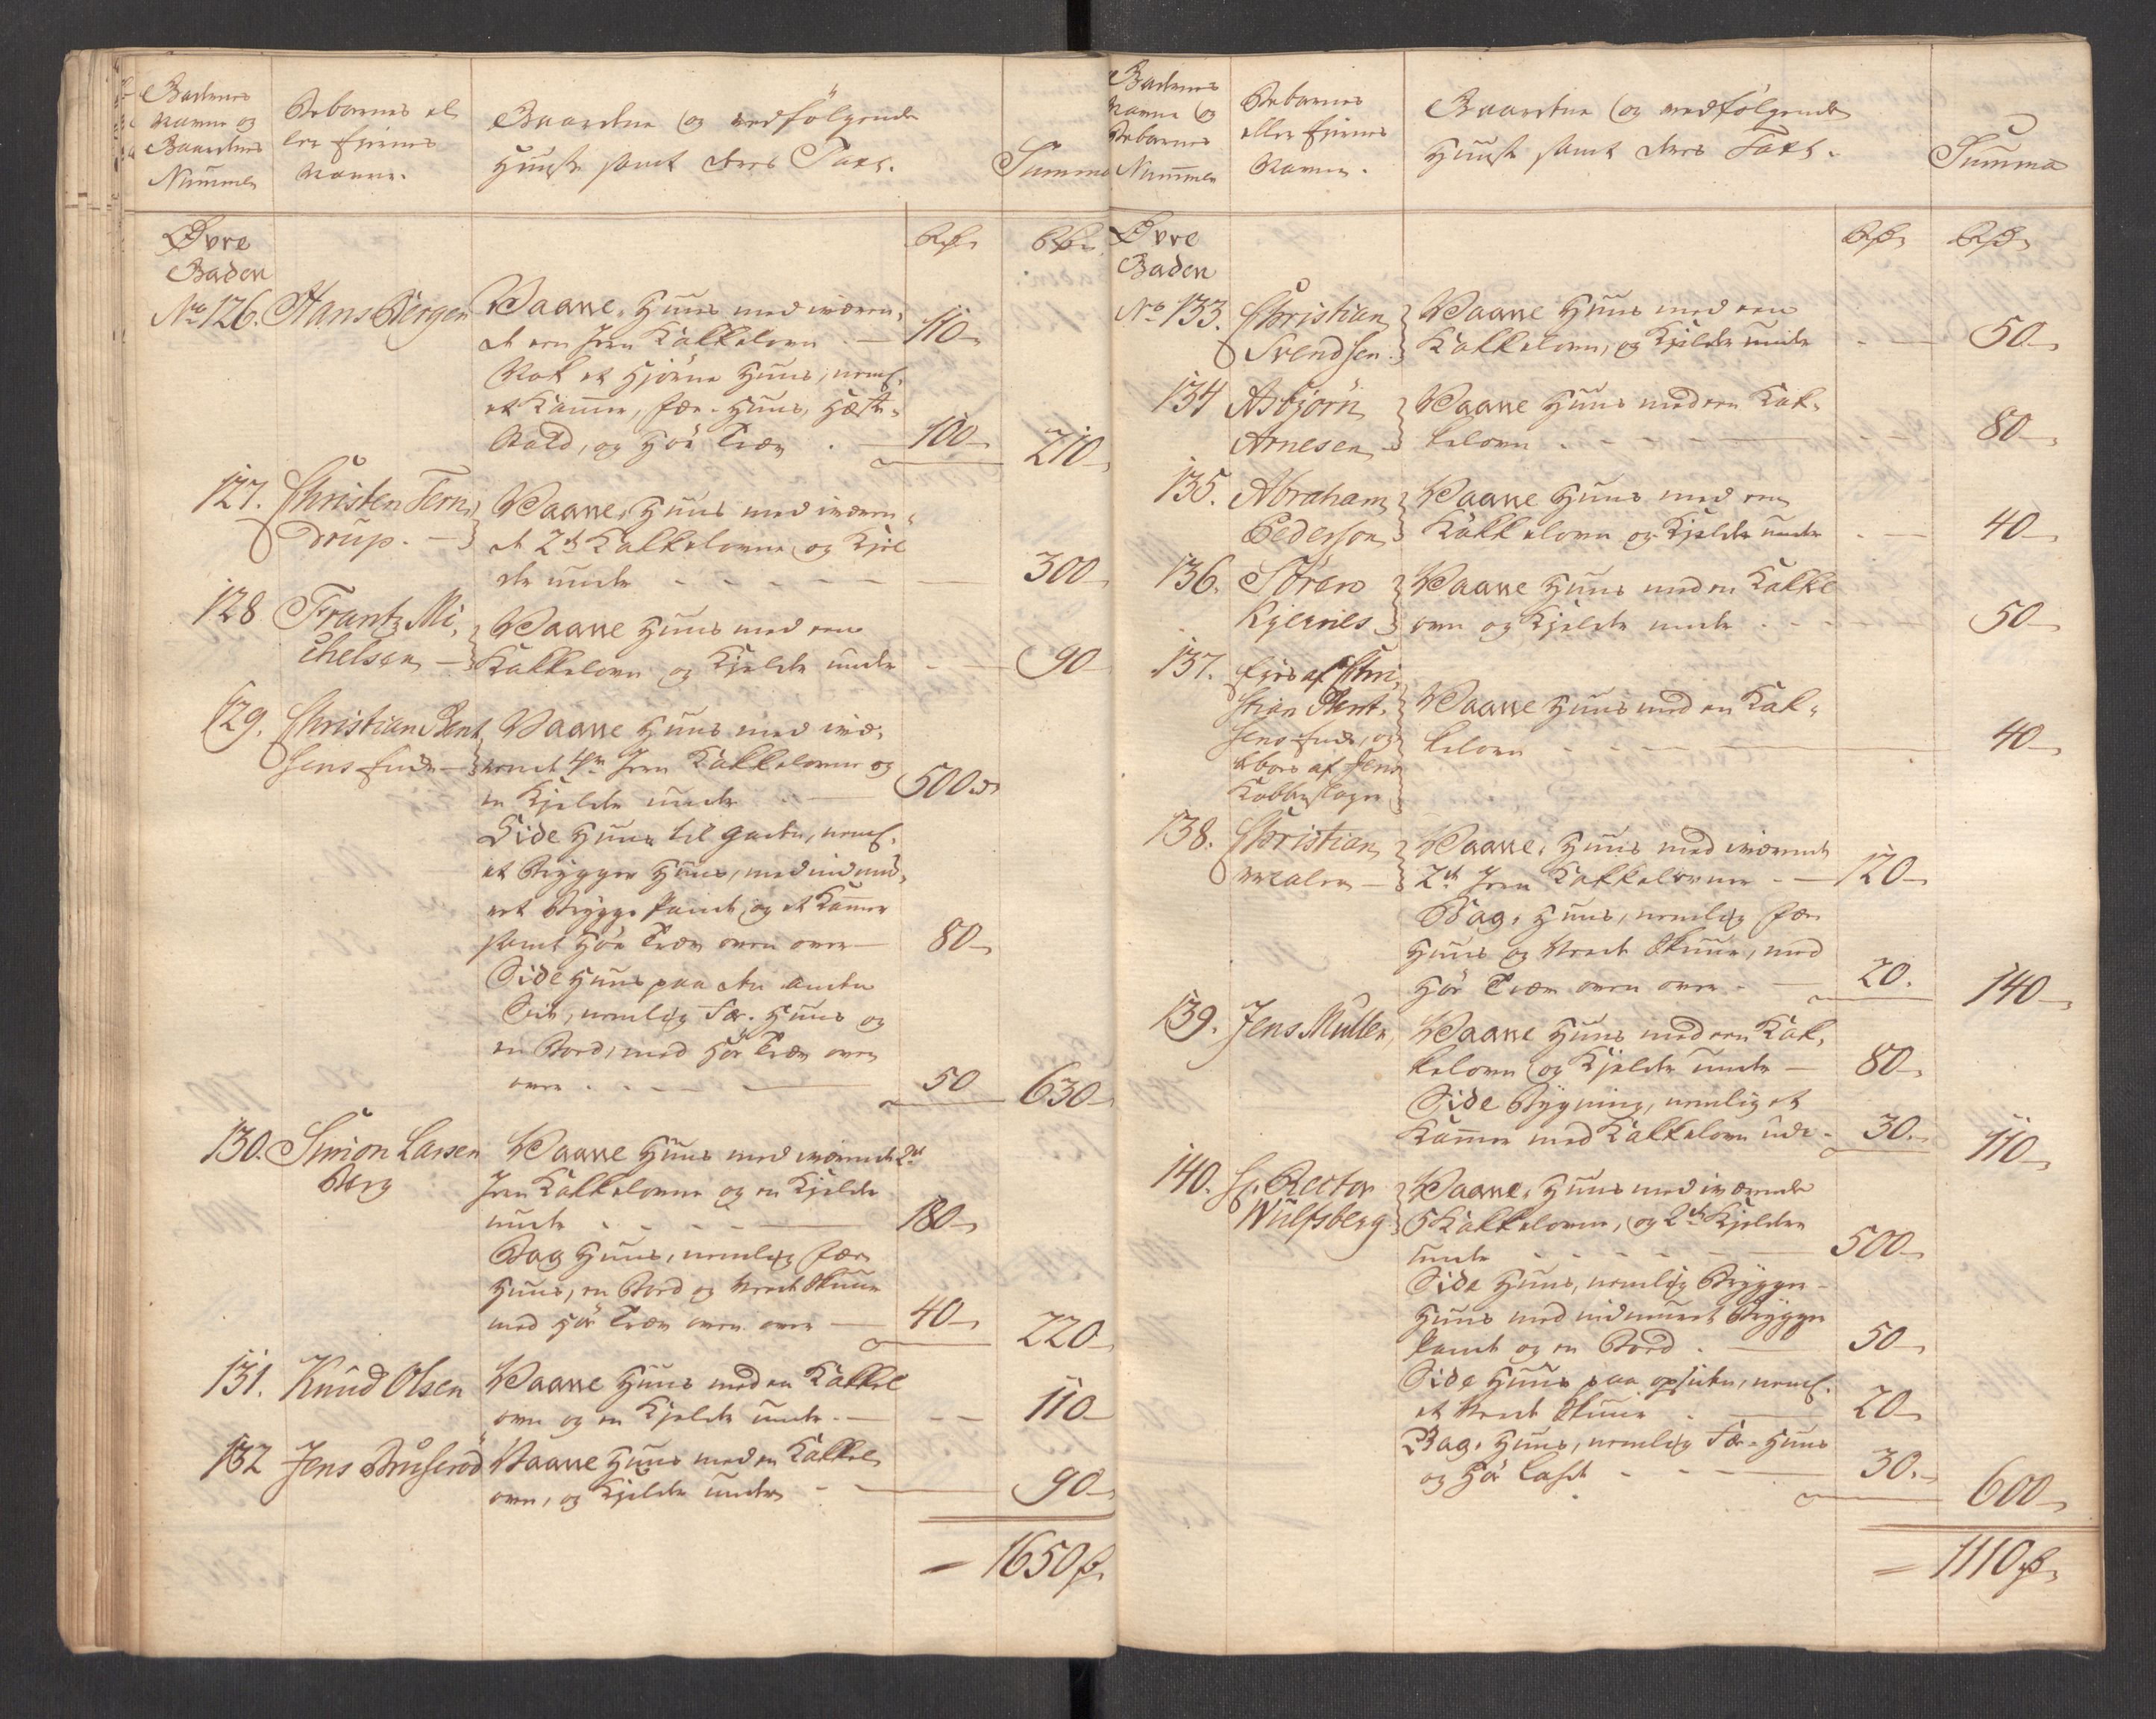 Gadernes
Navne og
Gaardenes
Nummer
Beboernes el
ler Eiernes
Navne.
Gaardene og medfölgende
Huuse samt deres Taxt.
Summa
Øvre
Gaden
Rdr
Rdr
No 126. Hans Bergen
Vaane, Huus med væren,
de een Jern Kakkelovn . — 110
Nok et Hjörne Huus, neml.
et Kammer, Fæe-Huus, Heste,
Stald, og Höe Træv . — 100 210
127. Christen Tern,
drup. —
Vaane, Huus med iværen,
de 2de Kakkelovne og Kjel
der under - - - - - 300
128 Frantz Mi,
chelsen —
Vaane Huus med een
Kakkelovn og Kjelder under - — 90
129. Christian Bent
sens Enke —
Vaane Huus med ivæ,
rende 4re Jern Kakkelovne og
en Kjelder under . — 500
Side Huus til Gaden, neml.
et Brygger Huus, med indmu,
ret Brygge Pande, og et Kammer
samt Höe Træv oven over — 80
Side Huus paa den anden
Side, nemlig Fæ-Huus og
en Boed, med Höe Træv oven
over . - - — 50 630
130. Simon Larsen
Berg
Vaane Huus med iværende 2de
Jern Kakkelovne og en Kjelder
under - - - — 180
Bag Huus, nemlig Fæe
Huus, en Boed og Veed Skuur
med Höe Træv oven over — 40 220
131. Knud Olsen
Vaane Huus med en Kakkel
ovn og en Kjelder under. — - - 110
132 Jens Bruseröd
Vaane Huus med en Kakkel
ovn, og Kjelder under - — 90
— 1650
Gadernes
Navne og
Beboernes
Nummer
Beboernes
eller Eiernes
Navne.
Gaardene og medfölgende
Huuse samt deres Taxt.
Summa
Øvre
Gaden
Rdr
Rdr
No 133. Christian
Svendsen
Vaane Huus med een
Kakkelovn, og Kjelder under - — 50
134 Asbjörn
Arnesen
Vaane Huus med een Kak,
kelovn . - - - — 80
135. Abraham
Pedersson
Vaane Huus med een
Kakkelovn og Kjelder under - — 40
136. Sören
Kjernes
Vaane Huus med en Kakkel
ovn og Kjelder under . - - — 50
137. Eies af Chri
stian Bent,
sens Enke, og
beboes af Jens
Kobberslager
Vaane Huus med en Kak,
kelovn - - - — 40
138. Christian

Vaane, Huus med iværende
2de Jern Kakkelovne - — 120
Bag, Huus, nemlig Fæe
Huus og Veed Skuur, med
Höe Træv oven over - — 20. 140
139. Jens Müller
Vaane Huus med een Kak,
kelovn og Kjelder under — 80
Side Bygning, nemlig et
Kammer med Kakkelovn udi - 30. 110
140. Hr. Rector
Wulfsberg
Vaane, Huus med iværende
5 Kakkelovne, og 2de Kjelder
under - - - - - — 500
Side Huus, nemlig Brygger-
Huus med indmuret Brygge
Pande og en Boed . — 50
Side Huus paa opsiden, neml.
et Veed Skuur . — 20
Bag, Huus, nemlig Fæ-Huus
og Höe Lade - - - — 30. 600
— 1110